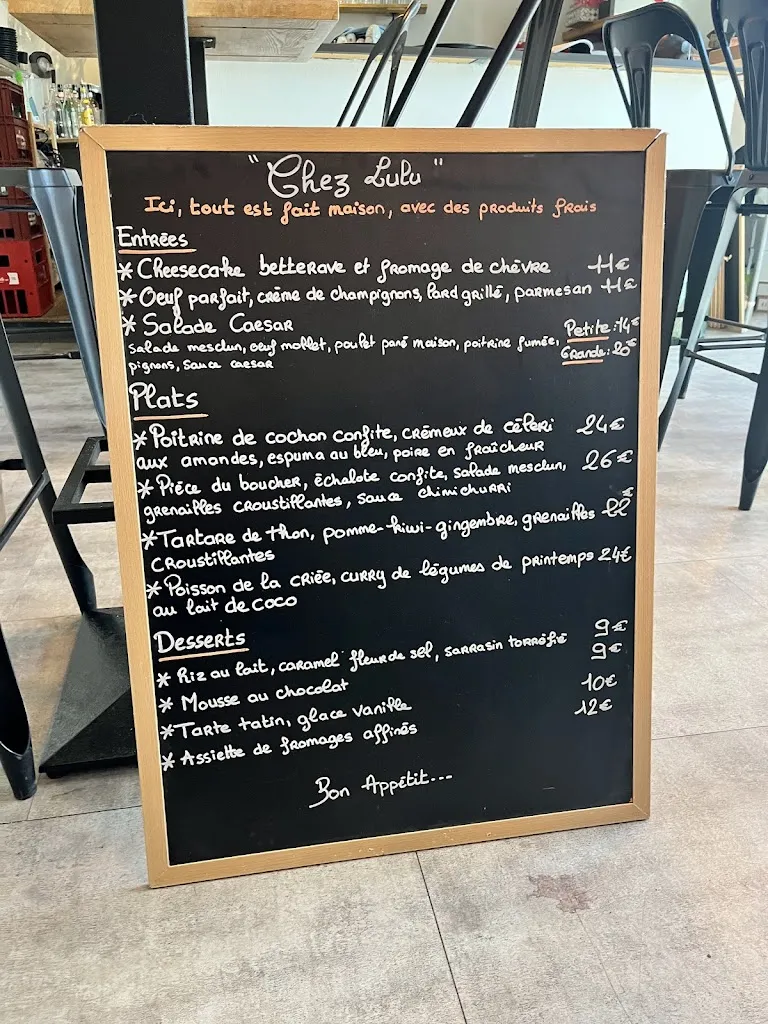 "Chez Lulu"
Ici, tout est fait maison, avec des produits frais
Entrées
* Cheesecake betterave et fromage de chèvre 11€
* Oeuf parfait, crème de champignons, lard grillé, parmesan 11€
* Salade Caesar
Salade mesclun, oeuf mollet, poulet pané maison, poitrine fumée, Petite : 14€
pignons, sauce caesar Grande : 20€
Plats
* Poitrine de cochon confite, crémeux de céleri 24€
aux amandes, espuma au bleu, poire en fraîcheur
* Pièce du boucher, échalote confite, salade mesclun, 26€
grenailles croustillantes, sauce chimichurri
* Tartare de thon, pomme-kiwi-gingembre, grenailles 22€
croustillantes
* Poisson de la criée, curry de légumes de printemps 24€
au lait de coco
Desserts
* Riz au lait, caramel fleur de sel, sarrasin torréfié 9€
* Mousse au chocolat 9€
* Tarte tatin, glace vanille 10€
* Assiette de fromages affinés 12€
Bon Appétit...